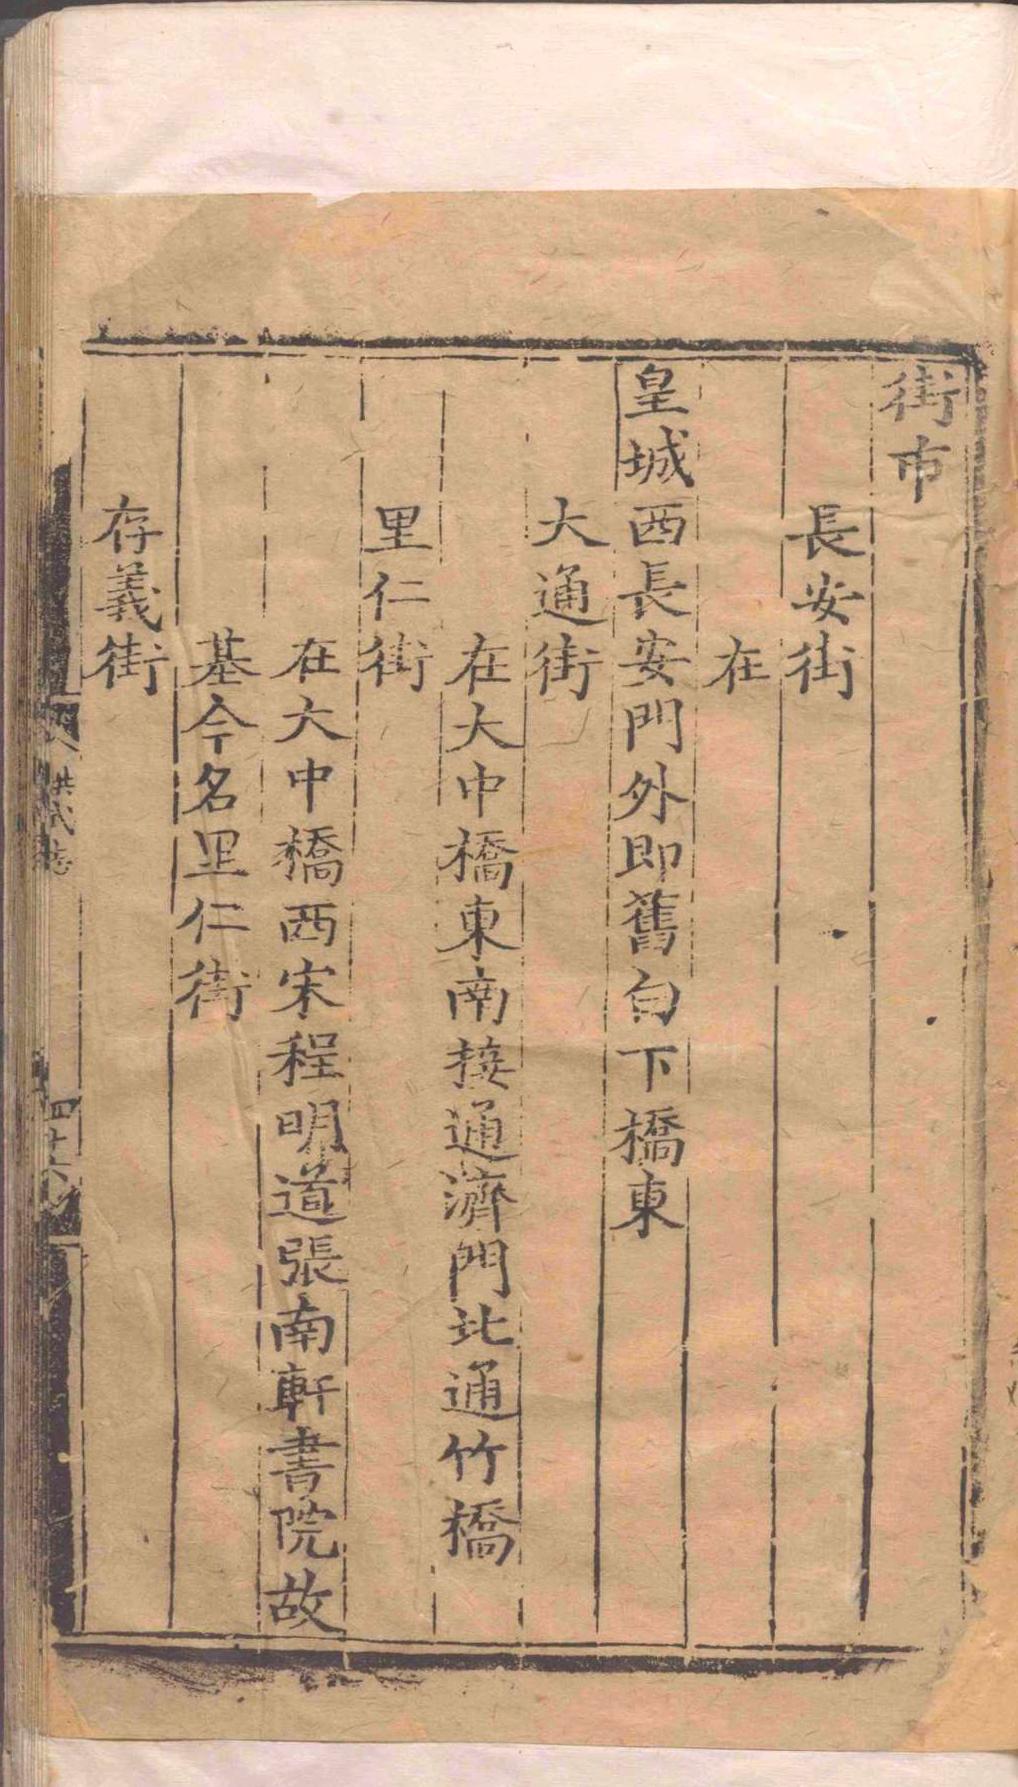 街市
長安街
在
皇城西長安門外即舊白下橋東
大通街
在大中橋東南接通濟門北通竹橋
里仁街
在大中橋西宋程明道張南軒書院故
基今名里仁街
存義街
洪武志
四十六